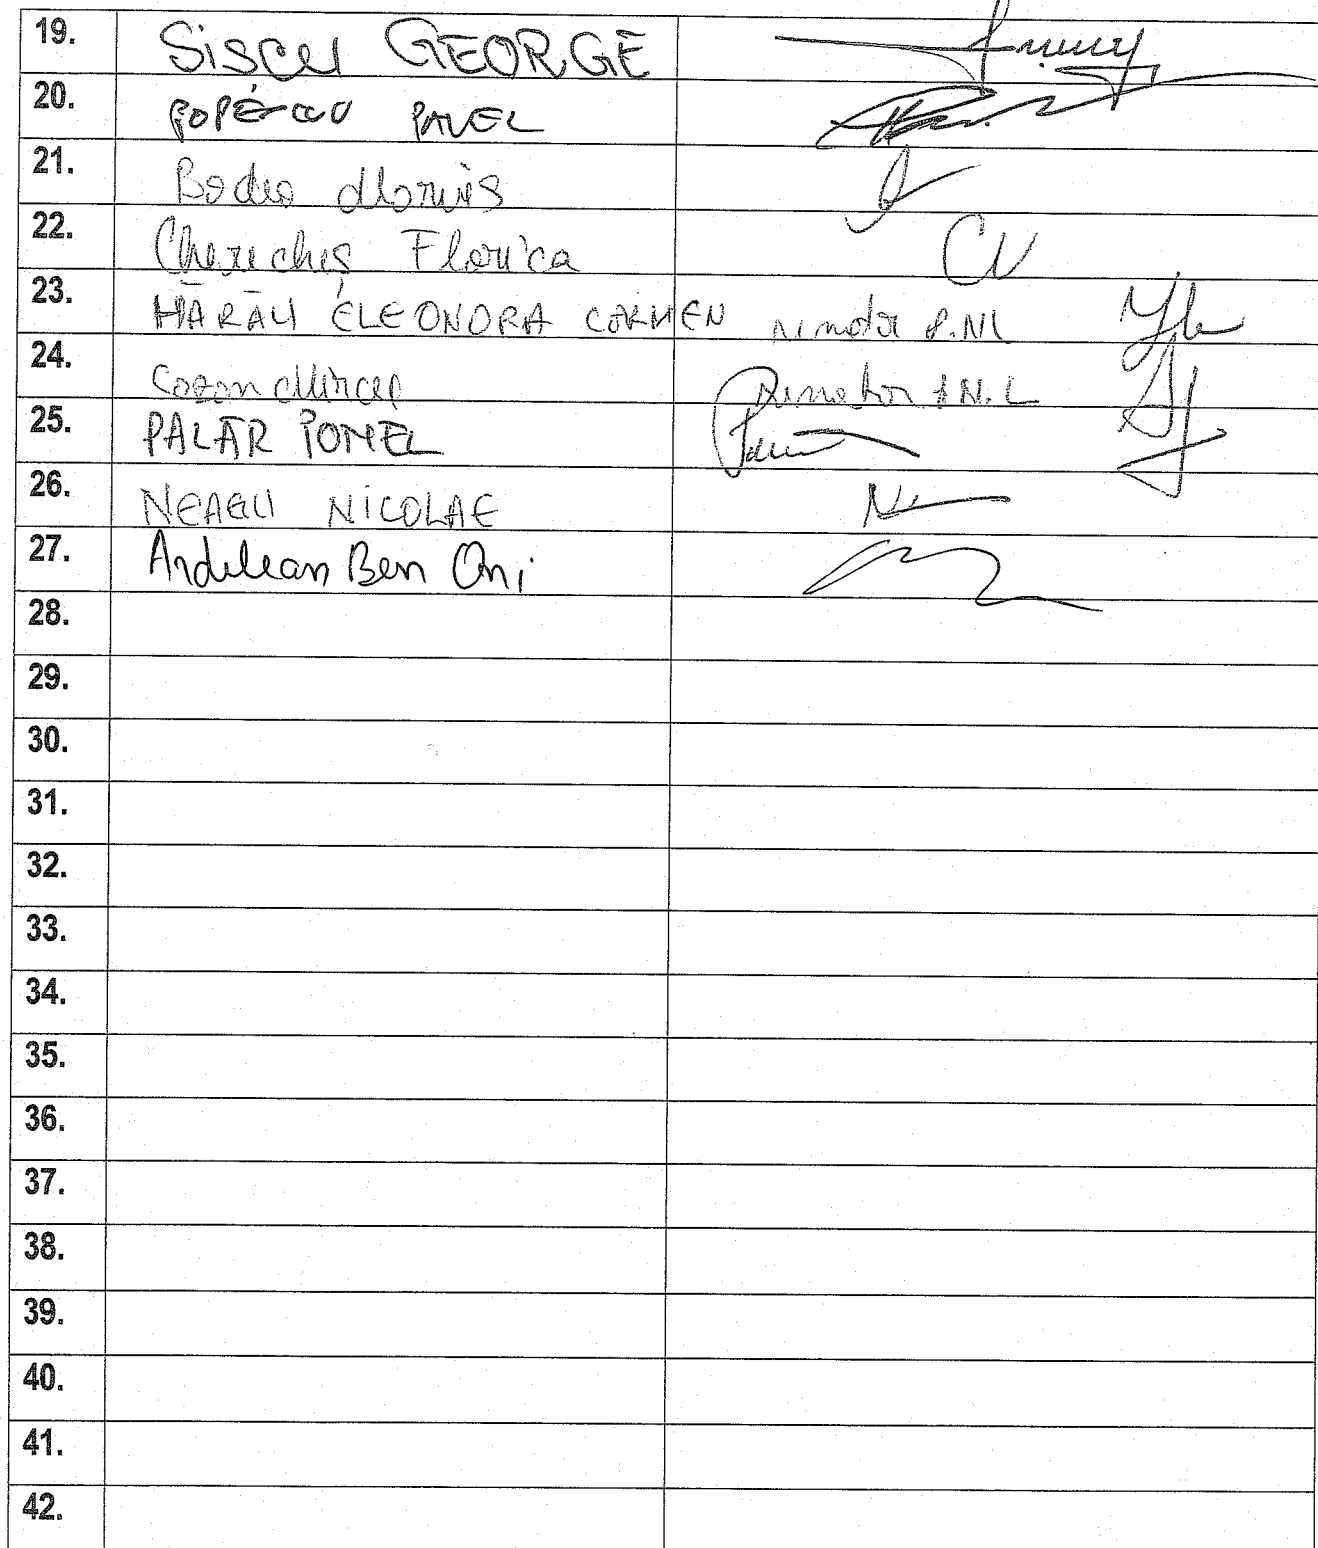 19. Siscu GEORGE
20. POPESCU PAVEL
21. Bodea Marius
22. Cherecheș Florica
23. HĂRĂU ELEONORA CARMEN senator P.N.L
24. Cozan Mircea Senator P.N.L
25. PALĂR IONEL
26. NEAGU NICOLAE
27. Ardelean Ben Oni
28.
29.
30.
31.
32.
33.
34.
35.
36.
37.
38.
39.
40.
41.
42.